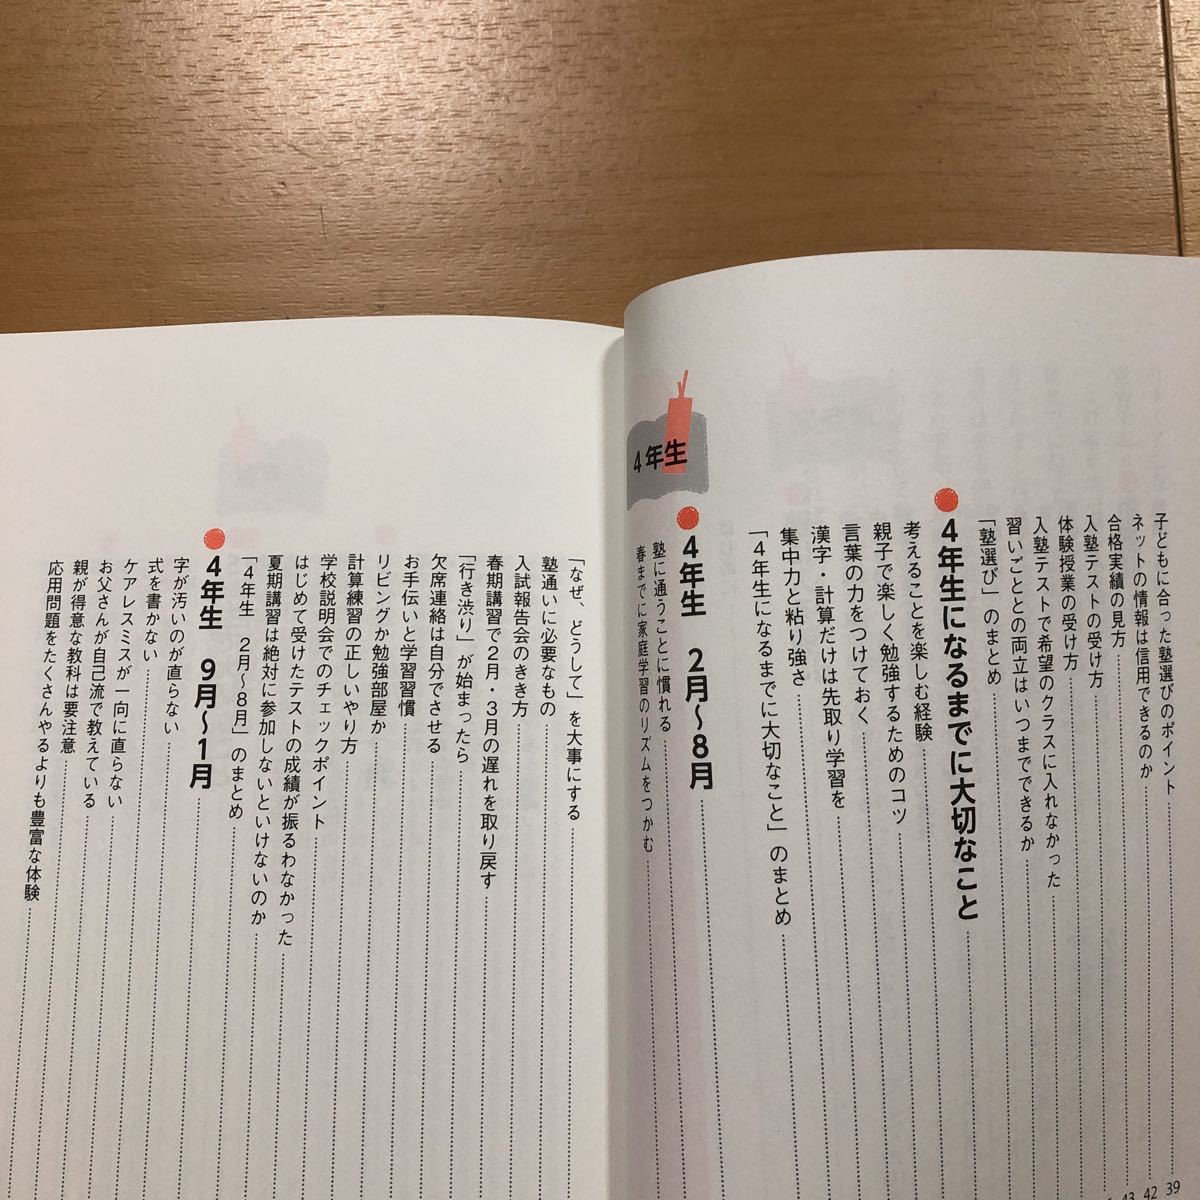 子どもに合った塾選びのポイント
ネットの情報は信用できるのか
合格実績の見方
入塾テストの受け方
体験授業の受け方
入塾テストで希望のクラスに入れなかった
習いごととの両立はいつまでできるか
「塾選び」のまとめ
4年生になるまでに大切なこと
考えることを楽しむ経験
親子で楽しく勉強するためのコツ
言葉の力をつけておく
漢字・計算だけは先取り学習を
集中力と粘り強さ
「4年生になるまでに大切なこと」のまとめ
4年生
4年生 2月〜8月
塾に通うことに慣れる
春までに家庭学習のリズムをつかむ
39
42
43
「なぜ、どうして」を大事にする
塾通いに必要なもの
入試報告会のきき方
春期講習で2月・3月の遅れを取り戻す
「行き渋り」が始まったら
欠席連絡は自分でさせる
お手伝いと学習習慣
リビングか勉強部屋か
計算練習の正しいやり方
学校説明会でのチェックポイント
はじめて受けたテストの成績が振るわなかった
夏期講習は絶対に参加しないといけないのか
「4年生 2月〜8月」のまとめ
4年生 9月〜1月
字が汚いのが直らない
式を書かない
ケアレスミスが一向に直らない
お父さんが自己流で教えている
親が得意な教科は要注意
応用問題をたくさんやるよりも豊富な体験